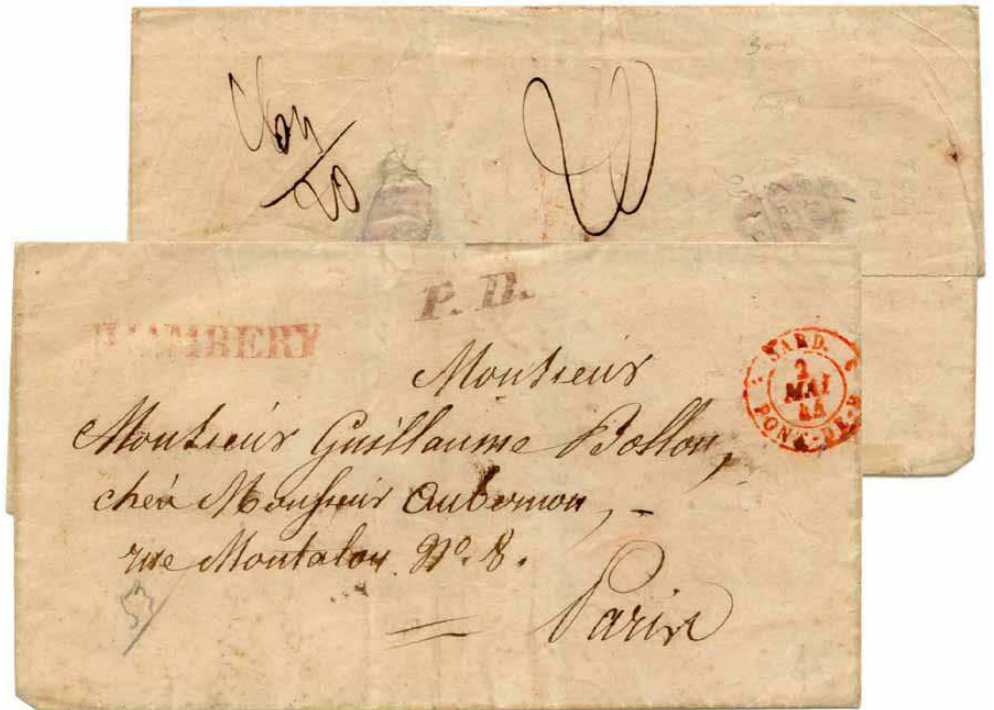 20
P. D.
CHAMBERY
SARD.
2
MAI
44
PONT-DE-B
Monsieur
Monsieur Guillaume Bollon,
chés Monsieur Aubernon, -
rue Montalon Nº. 8.
Paris
53